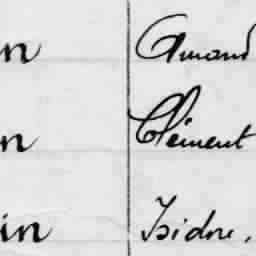 n Amand
n Clément
in Isidore.